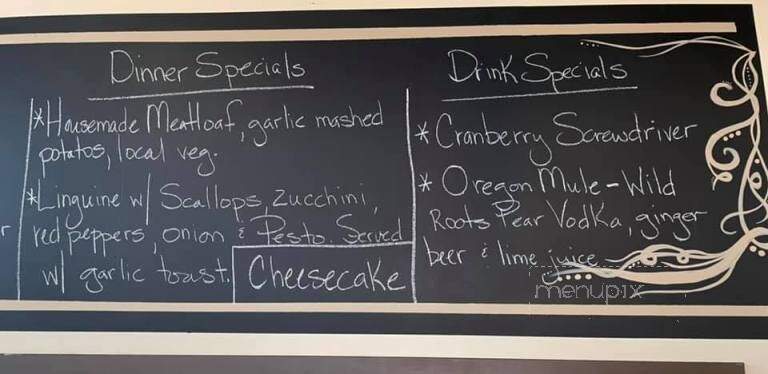 Dinner Specials
*Housemade Meatloaf, garlic mashed
potatos, local veg.
*Linguine w/ Scallops, zucchini,
red peppers, onion & Pesto. Served
w/ garlic toast.
Cheesecake
Drink Specials
* Cranberry Screwdriver
* Oregon Mule - Wild
Roots Pear Vodka, ginger
beer & lime juice
menupix
r